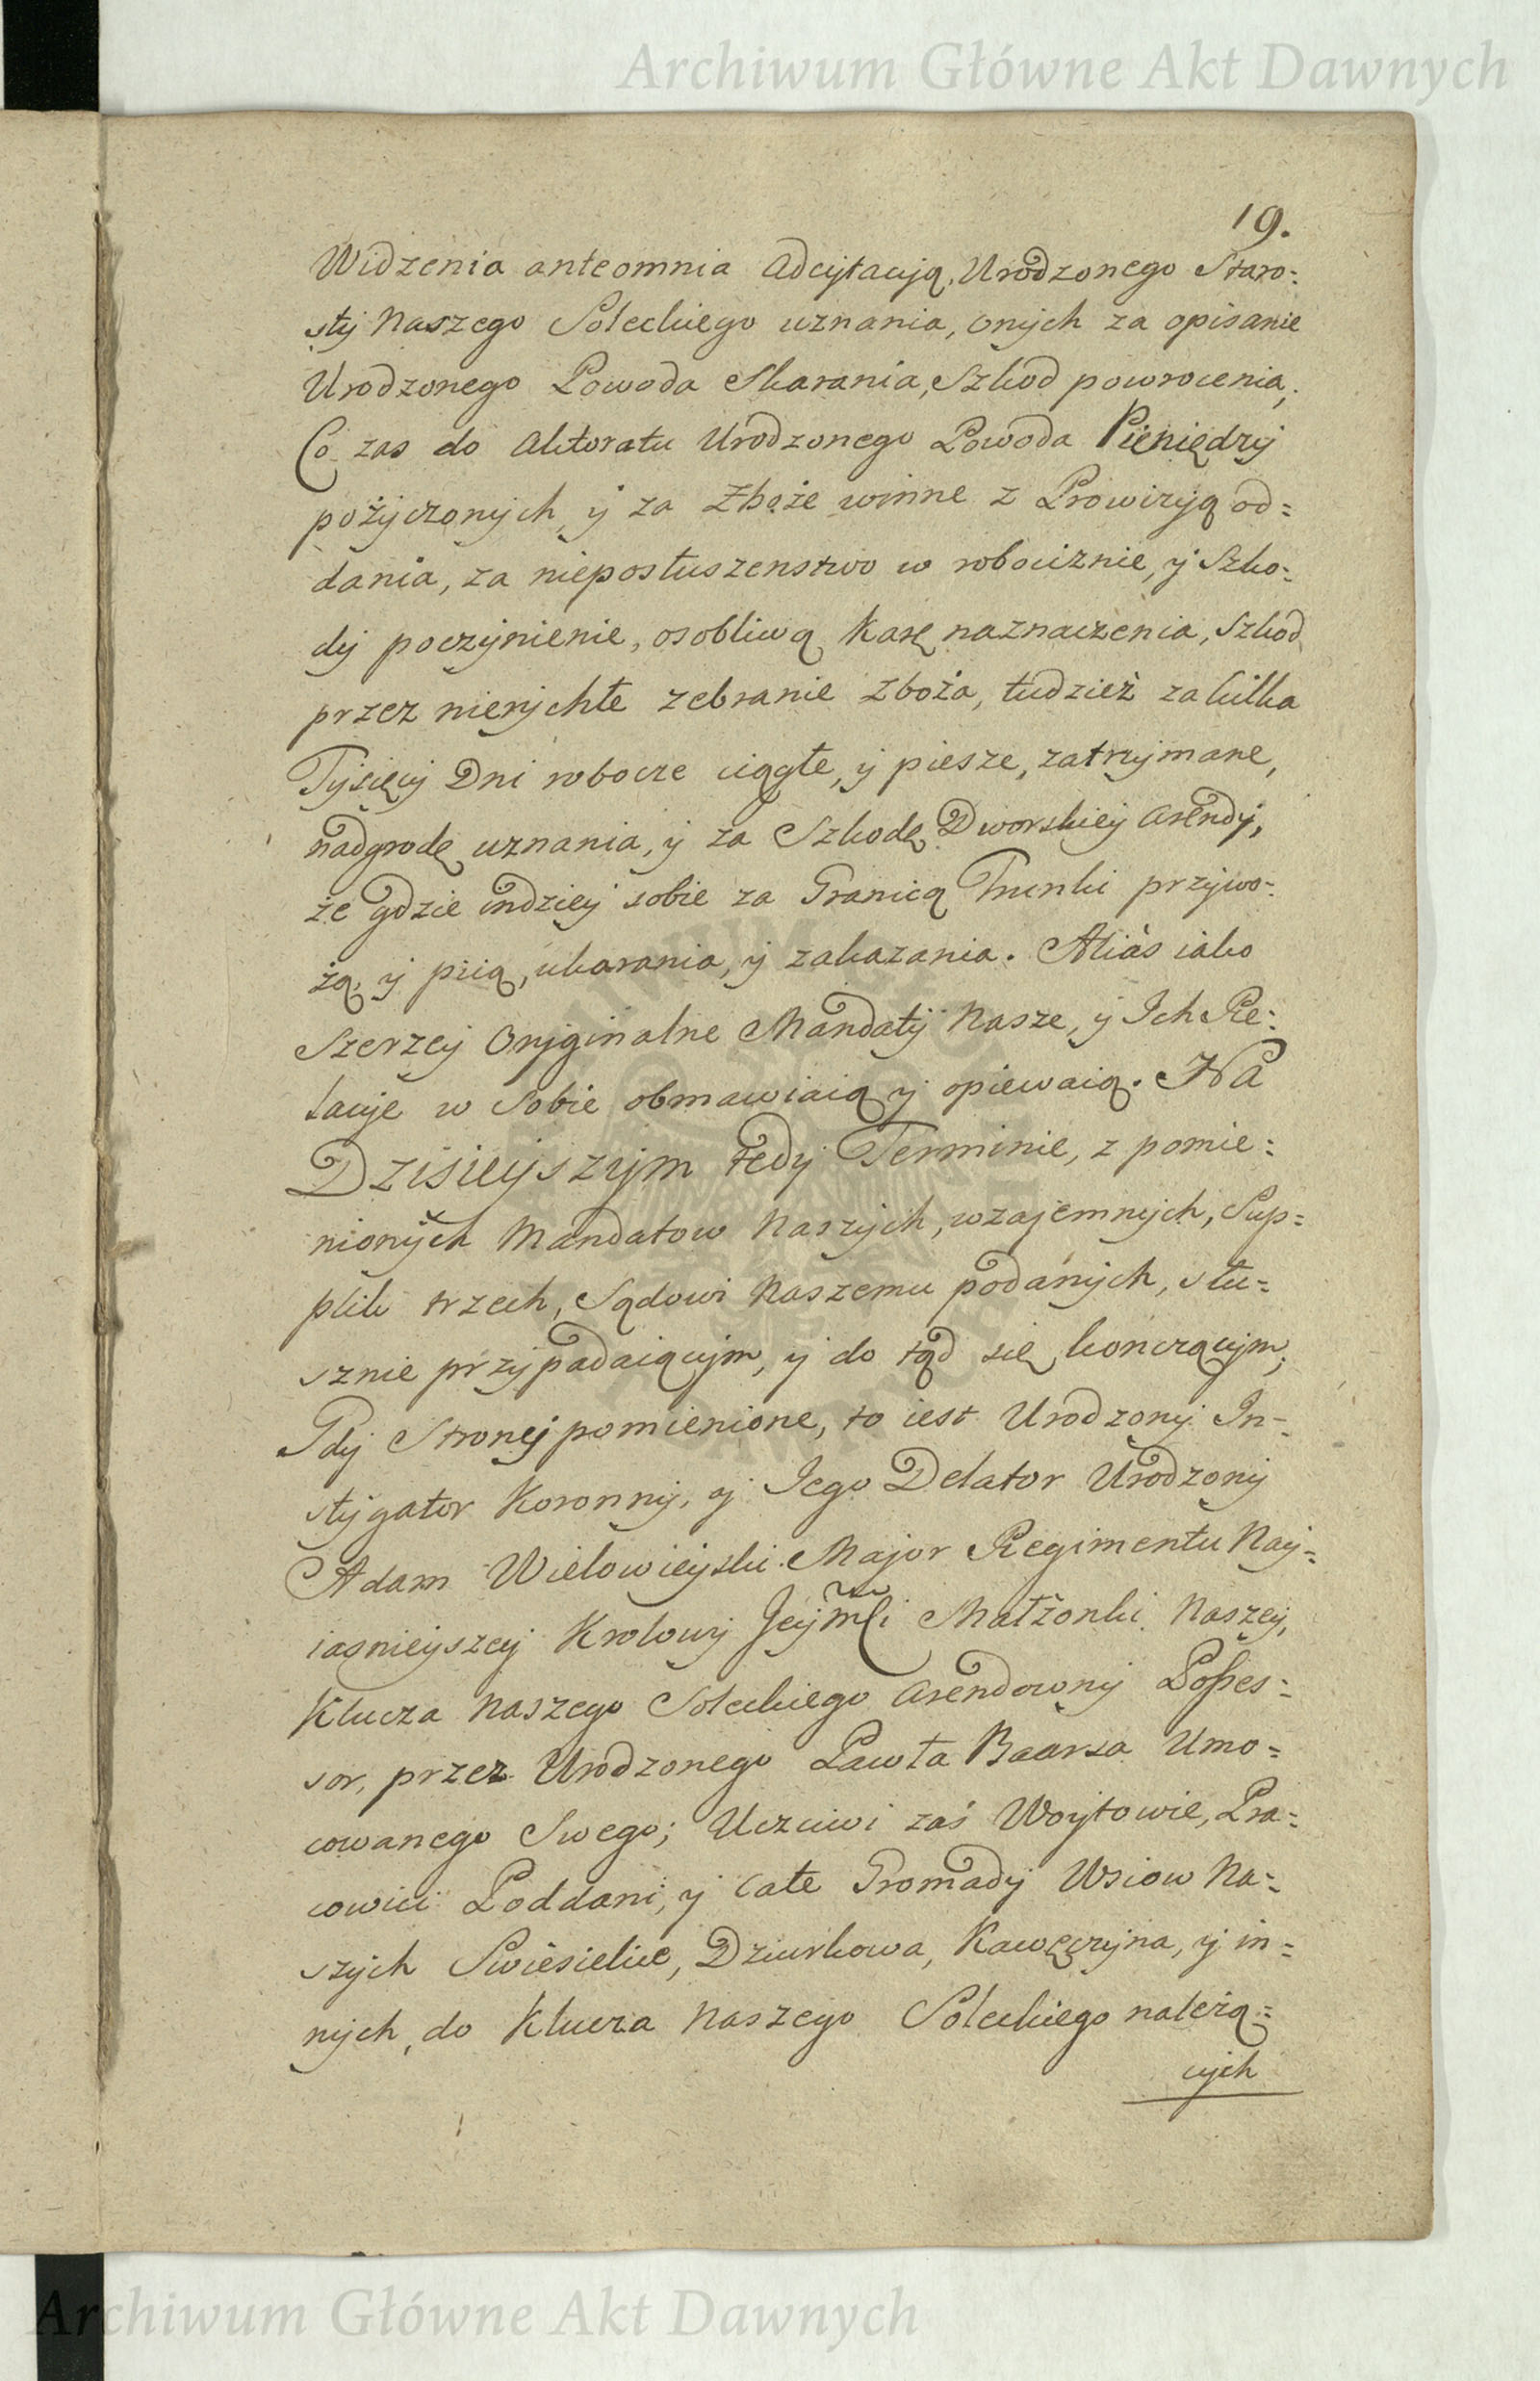 Archiwum Główne Akt Dawnych
19.
Widzenia anteomnia Adcytacyją, Urodzonego Staro:
sty Naszego Soleckiego uznania, onych za opisanie
Urodzonego Powoda Skarania, Szkod powrocenia,
Co zas do Aktoratu Urodzonego Powoda Pieniędzy
pożyczonych y za Zboże winne z Prowizyą od=
dania, za nieposłuszenstwo w robociznie, y Szko:
dy poczynienie, osobliwą Karę naznaczenia, Szkod
przez nierychłe zebranie Zboża, tudzież za kilka
Tysięcy Dni robocze ciągłe, y piesze, zatrzymane,
nadgrodę uznania, y za Szkodę Dworskiey Arendy,
że gdzie indziey sobie za Granicą Trunki przywo:
żą, y piią, ukarania, y zakazania. Aliàs iako
Szerzey Oryginalne Mandaty Nasze, y Ich Re:
lacye w Sobie obmawiaią y opiewaią. Na
Dzisieyszym tedy Terminie, z pomie:
nionych Mandatow Naszych, wzajemnych, Sup=
plik trzech, Sądowi Naszemu podanych, słu=
sznie przypadaiącym, y do tąd się kończącym,
Gdy Strony pomienione, to iest Urodzony In=
stygator Koronny, y Jego Delator Urodzony
Adam Wielowieyski Major Regimentu Nay=
iasnieyszey Krolowy Jeymći Małżonki Naszey,
Klucza Naszego Soleckiego Arendowny Posses:
sor, przez Urodzonego Pawła Baarsa Umo=
cowanego Swego; Uczciwi zaś Woytowie, Pra:
cowici Poddani, y całe Gromady Wsiow Na:
szych Swiesielice, Dziurkowa, Kawęczyna, y in=
nych, do Klucza Naszego Soleckiego należą=
cych
Archiwum Główne Akt Dawnych